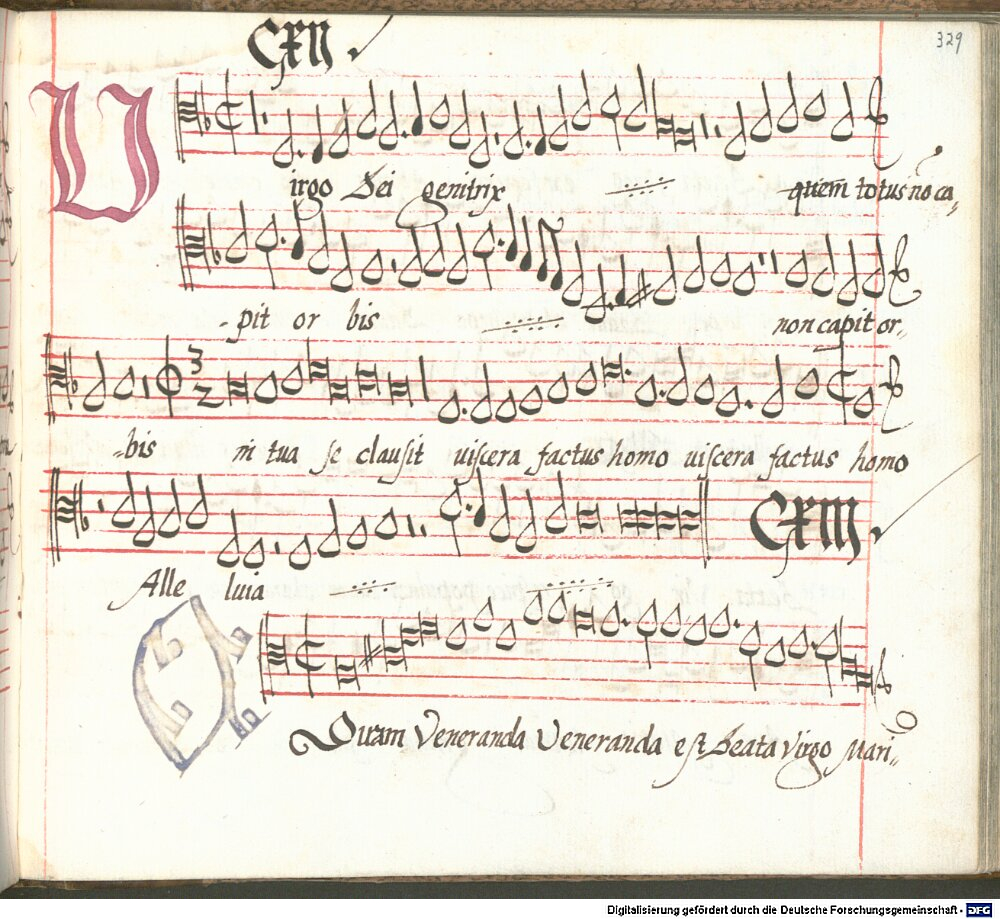 329
CXII
Virgo Dei genitrix quem̄ totus nō ca„
-pit or bis non capit or„
„bis in tua se clausit viscera factus homo viscera factus homo
Alle luia
CXIII
Quam Veneranda Veneranda est Beata Virgo Mari„
Digitalisierung gefördert durch die Deutsche Forschungsgemeinschaft - DFG